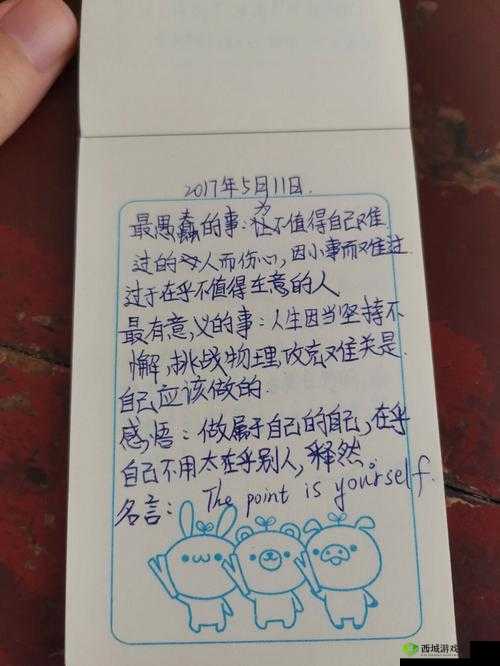 2017年5月11日.
最愚蠢的事:为不值得自己难
过的人而伤心,因小事而难过
过于在乎不值得生意的人
最有意义的事:人生因当坚持不
懈,挑战物理,攻克难关是
自己应该做的.
感悟:做属于自己的自己,在乎
自己不用太在乎别人,释然。
名言: The point is yourself.
西城游戏